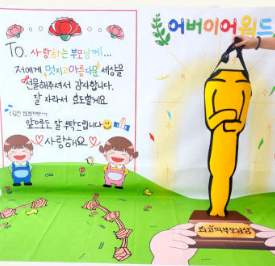 To. 사랑하는 부모님께!...
저에게 멋지고 아름다운 세상을
선물해주셔서 감사합니다.
잘 자라서 효도할게요.
앞으로도 잘 부탁드립니다
사랑해요
어버이어워드
최고의부모님상